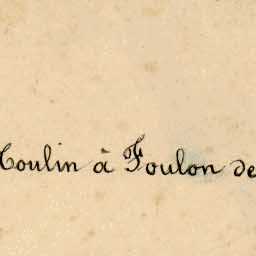 Moulin à Foulon de